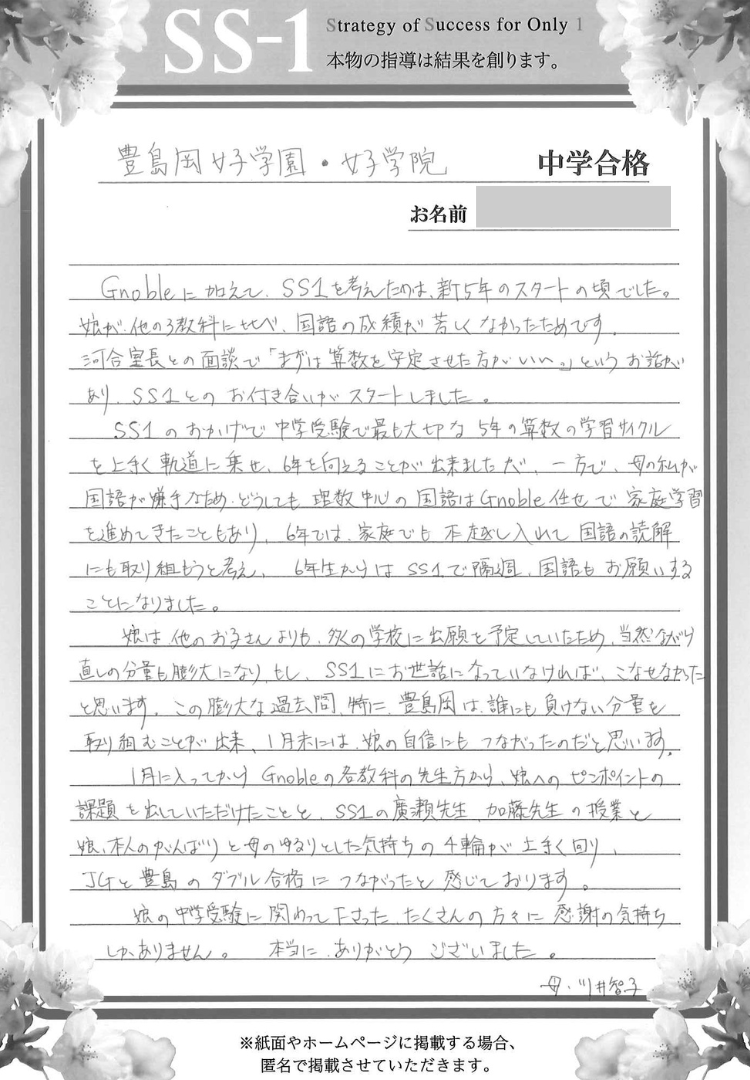 SS-1
Strategy of Success for Only 1
本物の指導は結果を創ります。
豊島岡女子学園・女子学院 中学合格
お名前
Gnobleに加えて、SS1を考えたのは、新5年のスタートの頃でした。
娘が、他の3教科に比べ、国語の成績が芳しくなかったためです。
河合室長との面談で「まずは算数を安定させた方がいい。」というお話が
あり、SS1とのお付き合いがスタートしました。
SS1のおかげで中学受験で最も大切な5年の算数の学習サイクル
を上手く軌道に乗せ、6年を向えることが出来ましたが、一方で、母の私が
国語が嫌手なため、どうしても理数中心の国語はGnoble任せで家庭学習
を進めてきたこともあり、6年では、家庭でも本越し入れて国語の読解
にも取り組もうと考え、6年生からはSS1で隔週、国語もお願いする
ことになりました。
娘は他のお子さんよりも、多くの学校に出願を予定していたため、当然ながら
直しの分量も膨大になり、もし、SS1にお世話になっていなければ、こなせなかった
と思います。この膨大な過去問、特に、豊島岡は、誰にも負けない分量を
取り組むことが出来、1月末には、娘の自信にもつながったのだと思います。
1月に入ってから Gnobleの各教科の先生方から、娘へのピンポイントの
課題を出していただけたことと、SS1の廣瀬先生、加藤先生の授業と
娘、本人のがんばりと母のゆるりとした気持ちの4輪が上手く回り、
JGと豊島のダブル合格につながったと感じております。
娘の中学受験に関わって下さった、たくさんの方々に感謝の気持ち
しかありません。 本当に、ありがとうございました。
母・川井智子
※紙面やホームページに掲載する場合、
匿名で掲載させていただきます。